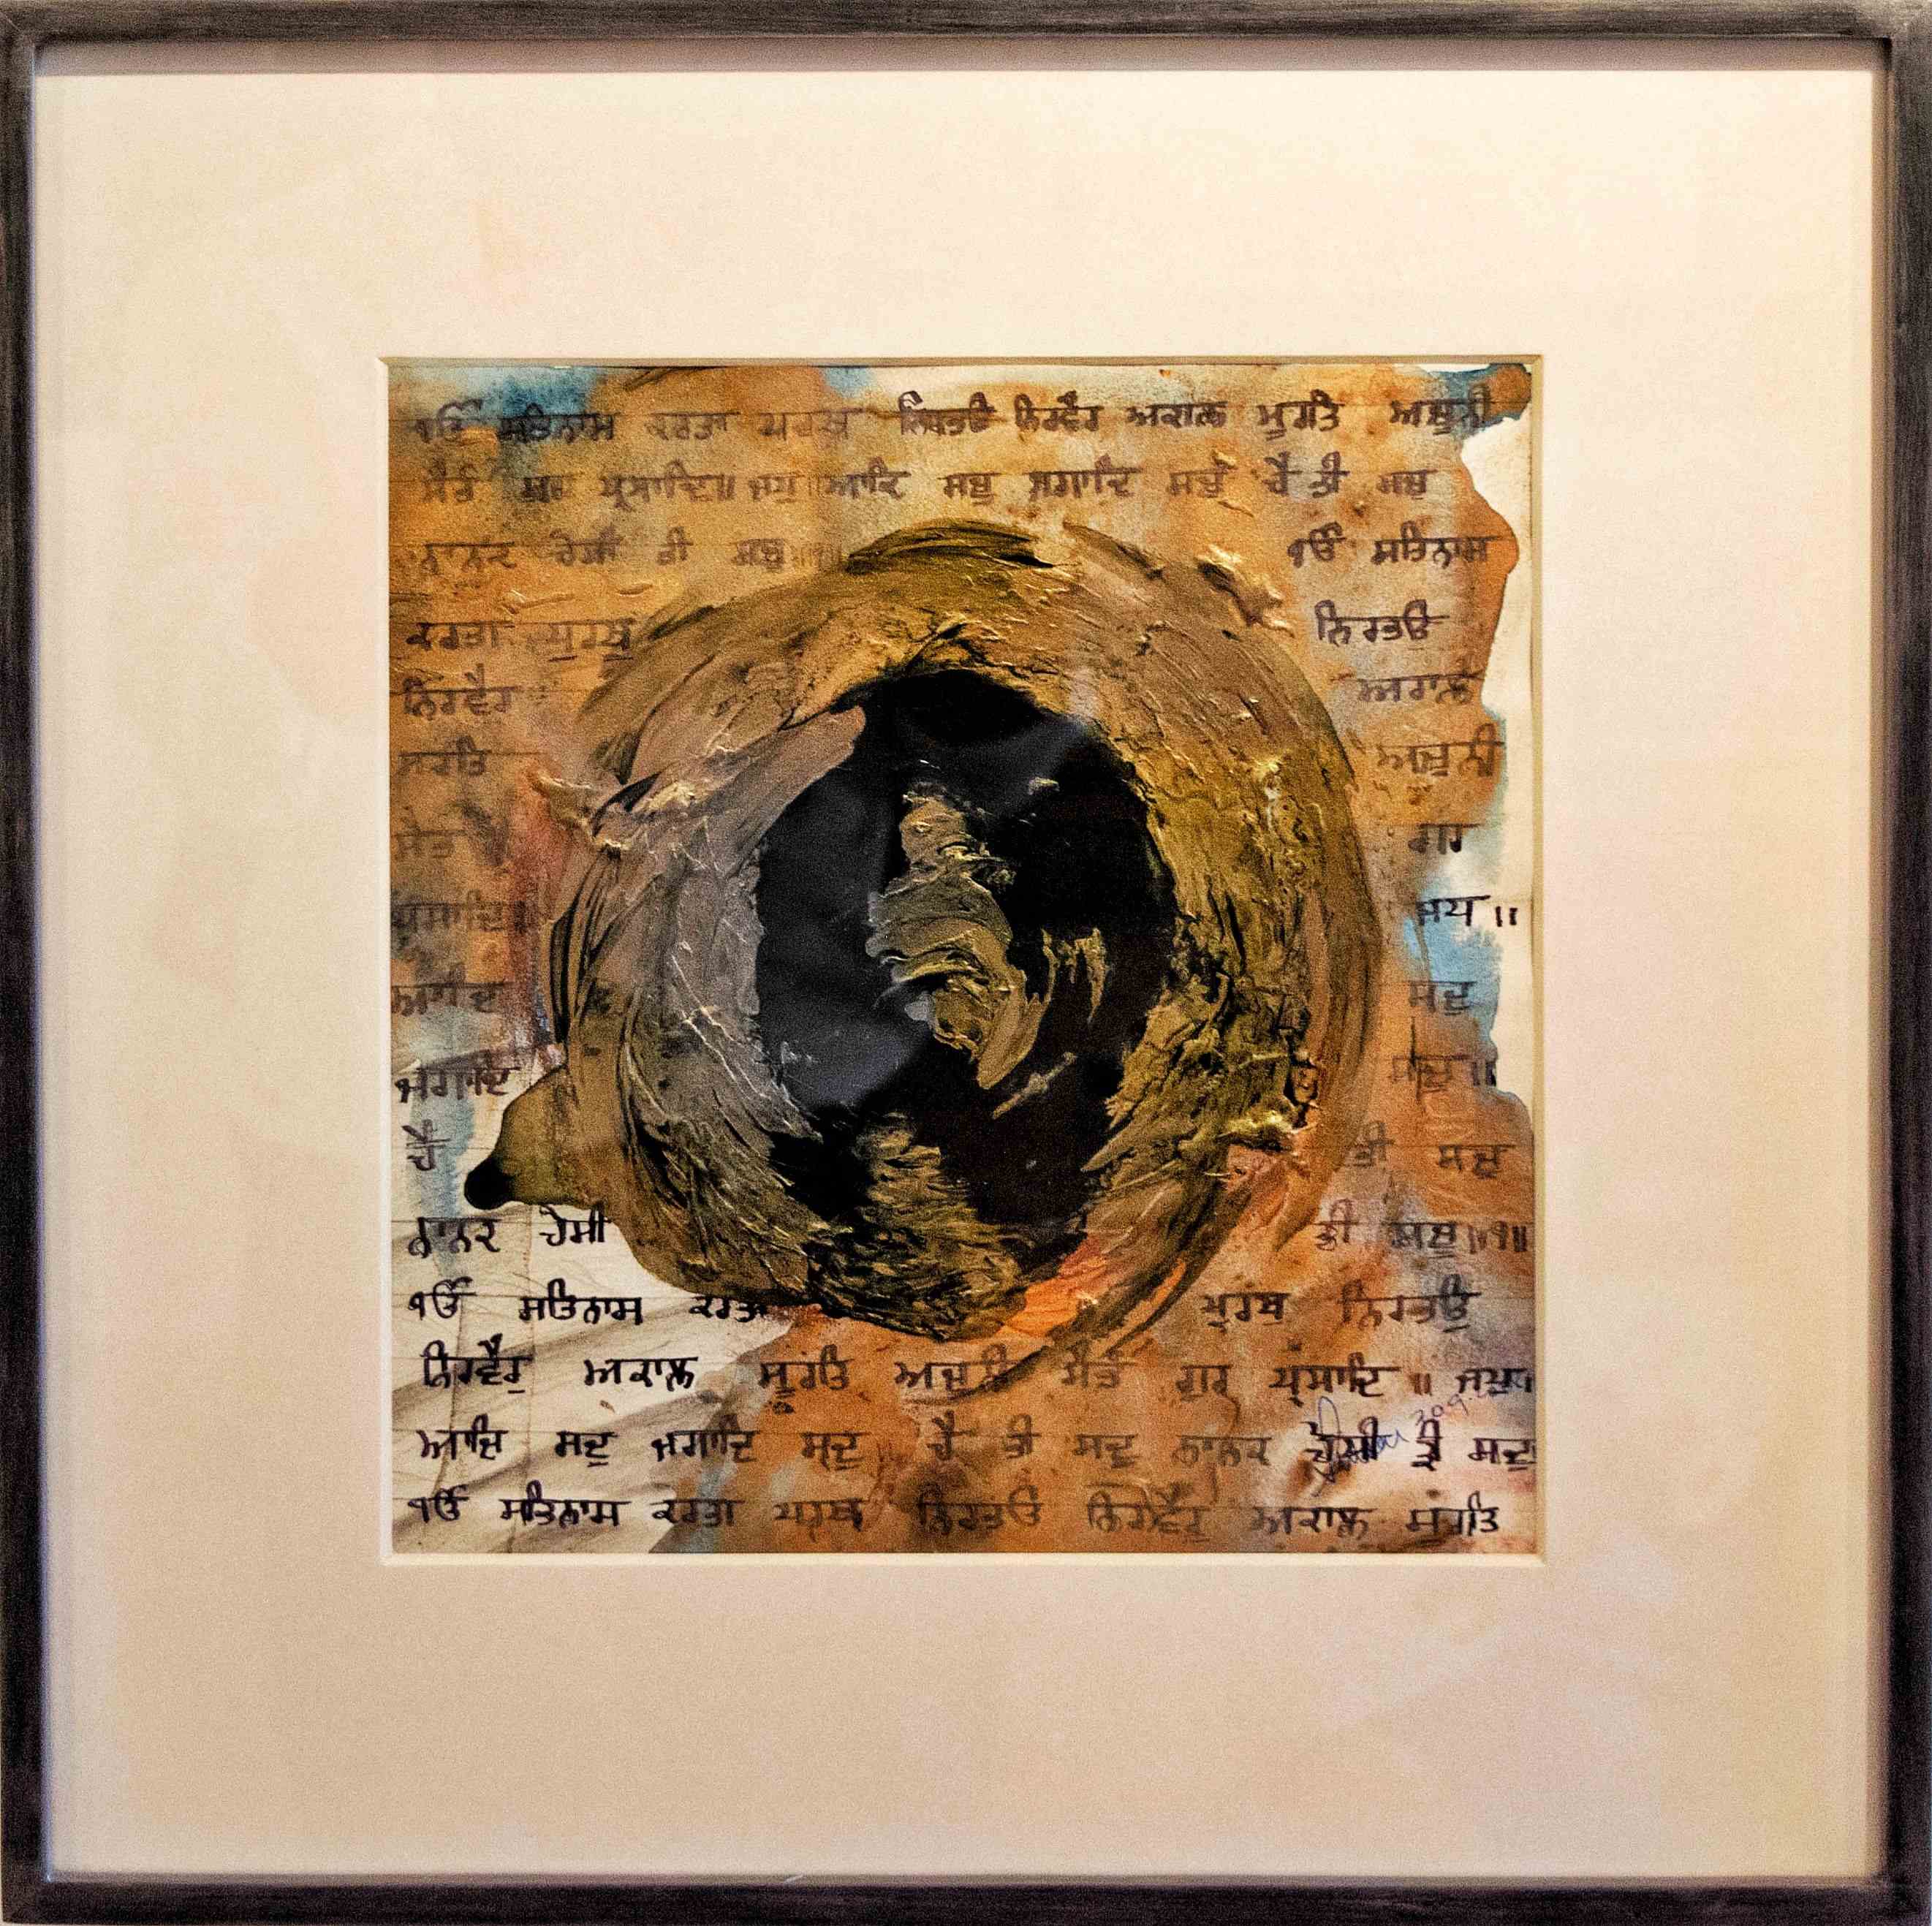 ੴ ਸਤਿਨਾਮ ਕਰਤਾ ਪਰਖ ਨਿਰਭਉ ਨਿਰਵੈਰ ਅਕਾਲ ਮੂਰਤਿ ਅਜੂਨੀ
ਸੈਭੰ ਗੁਰ ਪ੍ਰਸਾਦਿ॥ ਜਪੁ ॥ਆਦਿ ਸਚੁ ਜਗਾਦਿ ਸਚੁ ਹੈ ਭੀ ਸਚੁ
ਨਾਨਕ ਹੋਸੀ ਭੀ ਸਚੁ॥੧॥ ੴ ਸਤਿਨਾਮ
ਕਰਤਾ ਪੁਰਖੁ ਨਿਰਭਉ
ਨਿਰਵੈਰ ਅਕਾਲ
ਮੂਰਤਿ ਅਜੂਨੀ
ਸੈਭੰ ਗੁਰ
ਪ੍ਰਸਾਦਿ॥ ਜਪ ॥
ਆਦਿ ਸਚੁ
ਜਗਾਦਿ ਸਚੁ॥
ਹੈ ਭੀ ਸਚੁ
ਨਾਨਕ ਹੋਸੀ ਭੀ ਸਚੁ॥੧॥
ੴ ਸਤਿਨਾਮ ਕਰਤਾ ਪੁਰਖ ਨਿਰਭਉ
ਨਿਰਵੈਰੁ ਅਕਾਲ ਮੂਰਤਿ ਅਜੂਨੀ ਸੈਭੰ ਗੁਰ ਪ੍ਰਸਾਦਿ ॥ ਜਪੁ॥
ਆਦਿ ਸਚੁ ਜਗਾਦਿ ਸਚੁ ਹੈ ਭੀ ਸਚੁ ਨਾਨਕ ਹੋਸੀ ਭੀ ਸਚੁ
ੴ ਸਤਿਨਾਮ ਕਰਤਾ ਪੁਰਖ ਨਿਰਭਉ ਨਿਰਵੈਰੁ ਅਕਾਲ ਮੂਰਤਿ